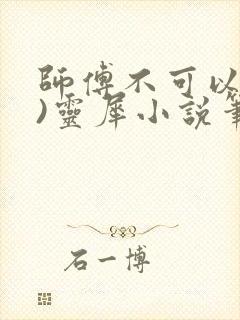 師傅不可以
)靈犀小說筆
石一博